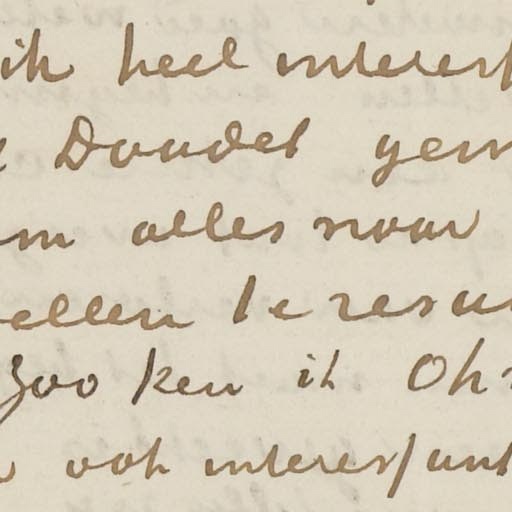 ik heel interess
Daudet gem
om alles naar
ellen te resu
Zoo ken ik Ohn
ook interessant